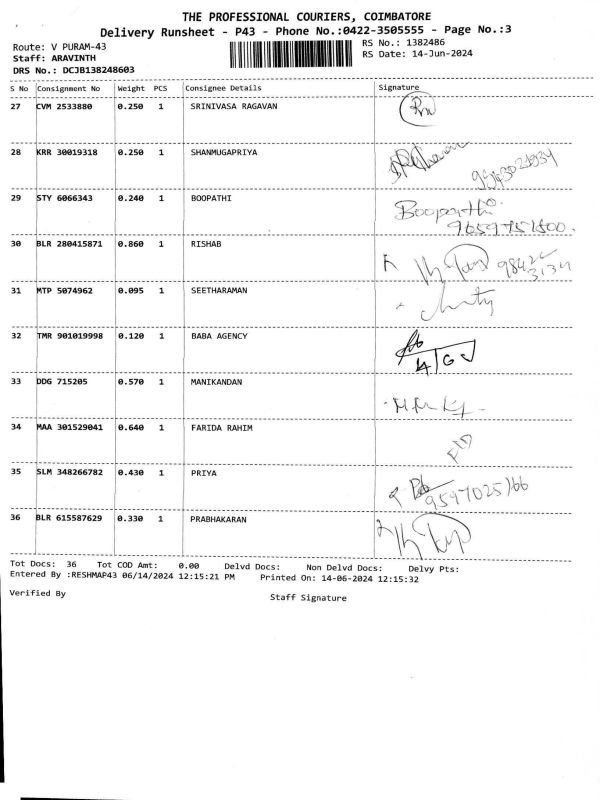 THE PROFESSIONAL COURIERS, COIMBATORE
Delivery Runsheet - P43 - Phone No.:0422-3505555 - Page No.:3
Route: V PURAM-43 RS No.: 1382486
Staff: ARAVINTH RS Date: 14-Jun-2024
DRS No.: DCJB138248603
S No Consignment No Weight PCS Consignee Details Signature
27 CVM 2533880 0.250 1 SRINIVASA RAGAVAN
28 KRR 30019318 0.250 1 SHANMUGAPRIYA
29 STY 6066343 0.240 1 BOOPATHI Boopathi
9659751500.
30 BLR 280415871 0.860 1 RISHAB
31 MTP 5074962 0.095 1 SEETHARAMAN
32 TMR 901019998 0.120 1 BABA AGENCY
33 DDG 715205 0.570 1 MANIKANDAN
34 MAA 301529041 0.640 1 FARIDA RAHIM
35 SLM 348266782 0.430 1 PRIYA 9597025166
36 BLR 615587629 0.330 1 PRABHAKARAN
Tot Docs: 36 Tot COD Amt: 0.00 Delvd Docs: Non Delvd Docs: Delvy Pts:
Entered By :RESHMAP43 06/14/2024 12:15:21 PM Printed On: 14-06-2024 12:15:32
Verified By Staff Signature